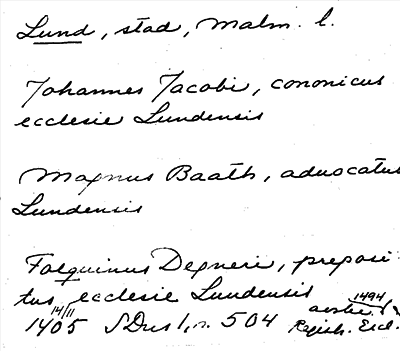 Lund, stad, Malm. l.
Johannes Jacobi, cononicus
ecclesie Lundensis
Magnus Baath, aduocatus
Lundensis
Folquinus Degneri, preposi
tus ecclesie Lundensis
14/11 1494
1405 SDns 1, n. 504 Registr. Eccl.